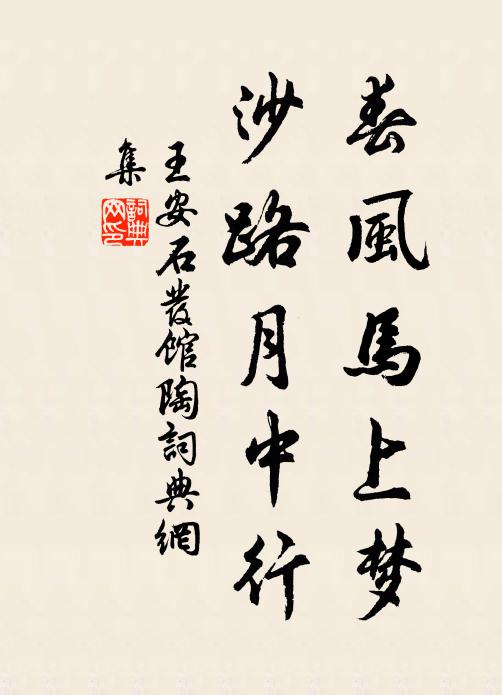 春風馬上梦
沙路月中行
王安石發館陶詞典網
集
詞典
网印